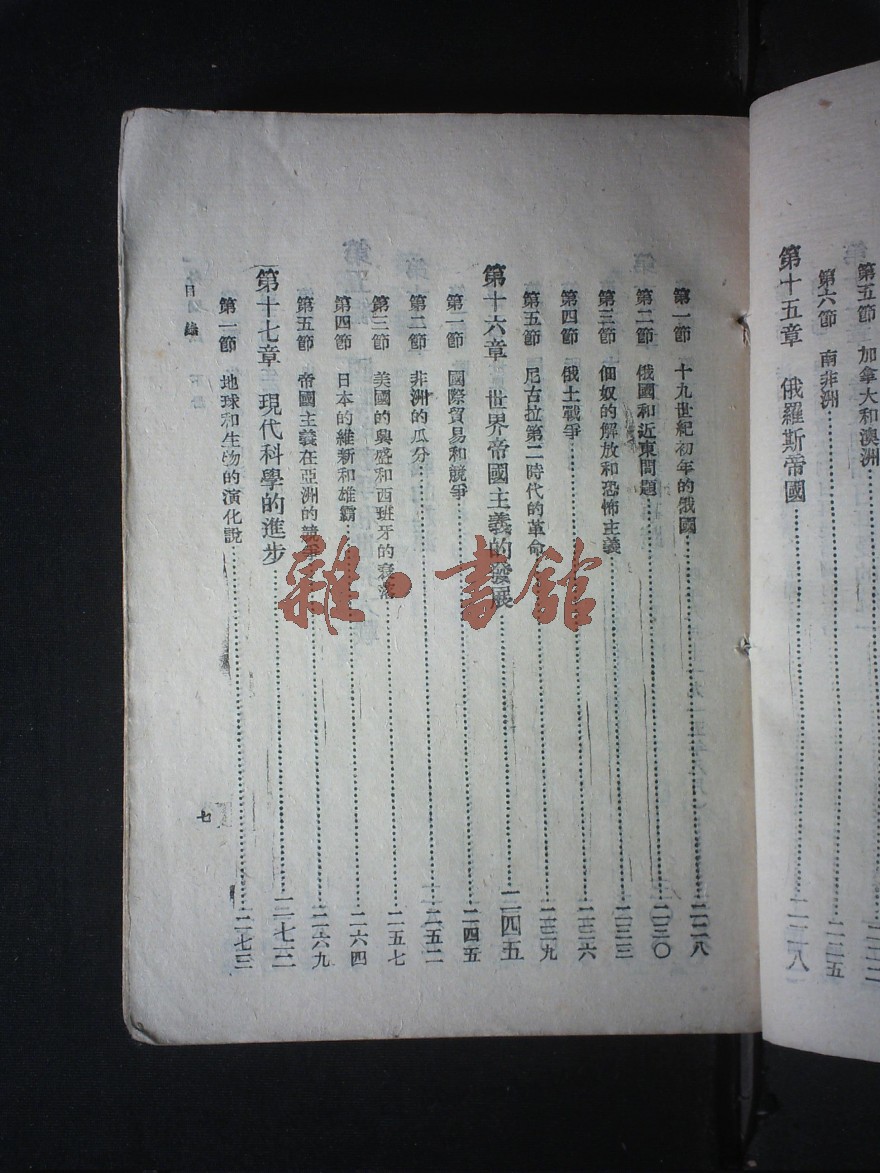 第五節 加拿大和澳洲
第六節 南非洲……二二五
第十五章 俄羅斯帝國……二二八
第一節 十九世紀初年的俄國……二二八
第二節 俄國和近東問題……二三〇
第三節 佃奴的解放和恐怖主義……二三三
第四節 俄土戰爭……二三六
第五節 尼古拉第二時代的革命……二三九
第十六章 世界帝國主義的發展……二四五
第一節 國際貿易和競爭……二四五
第二節 非洲的瓜分……二五二
第三節 美國的興盛和西班牙的衰落……二五七
第四節 日本的維新和雄霸……二六四
第五節 帝國主義在亞洲的競爭……二六九
第十七章 現代科學的進步……二七三
第一節 地球和生物的演化說……二七三
目錄
七
雜·書館